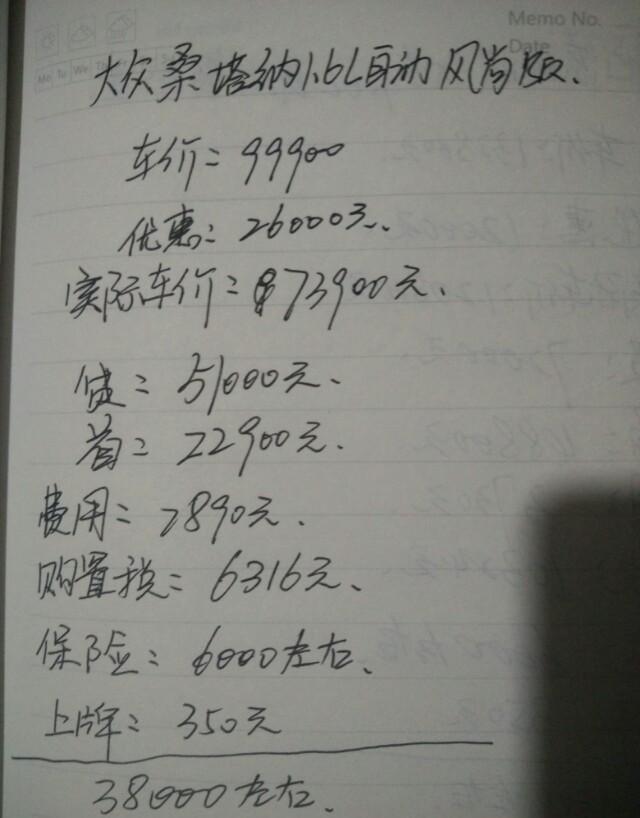 Memo No.
Date
Mo Tu We Th
大众桑塔纳1.6L自动风尚版、
车价=99900
优惠: 26000元、
实际车价=73900元、
贷=51000元、
首=22900元、
费用=2890元、
购置税=6316元、
保险: 6000左右、
上牌: 350元
38000左右、